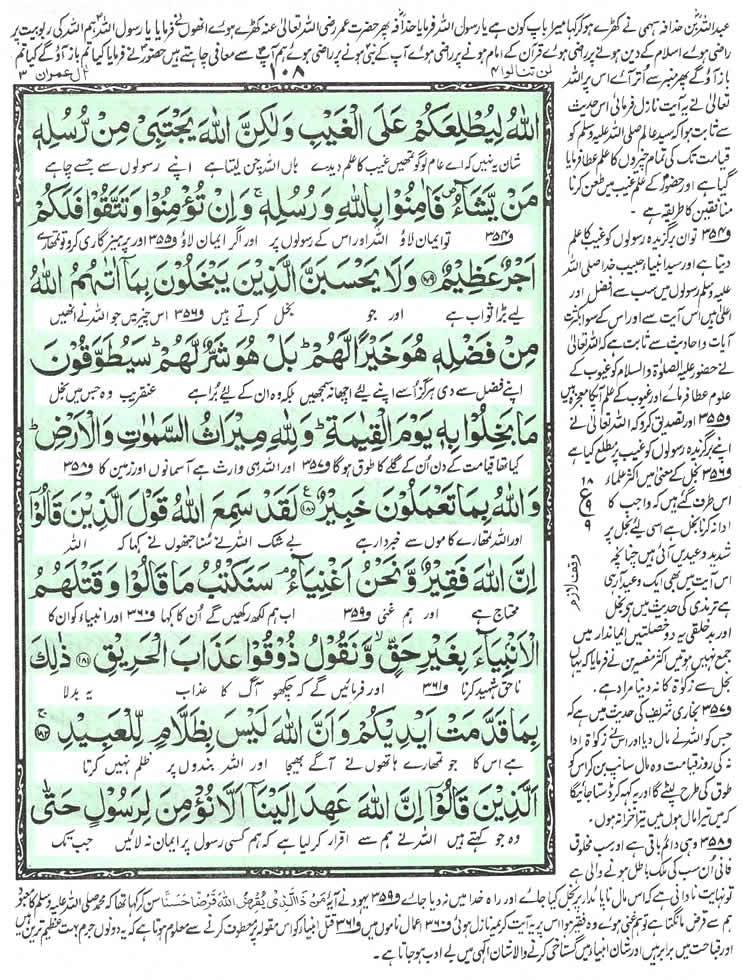 عبداللہ بن حذافہ سہمی نے کھڑے ہو کر کہا میرا باپ کون ہے یا رسول اللہ فرمایا حذافہ پھر حضرت عمر رضی اللہ تعالیٰ عنہ کھڑے ہوئے انھوں نے فرمایا یا رسول اللہ ہم اللہ کی ربوبیت پر
راضی ہوئے اسلام کے دین ہونے پر راضی ہوئے قرآن کے امام ہونے پر راضی ہوئے آپ کے نبی ہونے پر راضی ہوئے ہم آپ سے معافی چاہتے ہیں حضور نے فرمایا کیا تم باز آؤ گے کیا تم
لن تنالوا ۴
۱۰۸
اٰل عمران ۳
باز آؤ گے پھر منبر سے اُتر آئے اس پر اللہ
تعالیٰ نے یہ آیت نازل فرمائی اس حدیث
سے ثابت ہوا کہ سید عالم صلی اللہ علیہ وسلم کو
قیامت تک کی تمام چیزوں کا علم عطا فرمایا
گیا ہے اور حضور کے علم غیب میں طعن کرنا
منافقین کا طریقہ ہے ۔
و۳۵۴ تو ان برگزیدہ رسولوں کو غیب کا علم
دیتا ہے اور سید انبیا حبیب خدا صلی اللہ
علیہ وسلم رسولوں میں سب سے افضل اور
اعلیٰ ہیں اس آیت سے اور اس کے سوا بکثرت
آیات و احادیث سے ثابت ہے کہ اللہ تعالیٰ
نے حضور علیہ الصلوٰۃ والسلام کو غیوب کے
علوم عطا فرمائے اور غیوب کے علم آپ کا معجزہ ہیں
و۳۵۵ اور تصدیق کرو کہ اللہ تعالیٰ نے
اپنے برگزیدہ رسولوں کو غیب پر مطلع کیا ہے
و۳۵۶ بخل کے معنیٰ میں اکثر علماء
اس طرف گئے ہیں کہ واجب کا
ادا نہ کرنا بخل ہے اسی لئے بخل پر
شدید وعیدیں آئی ہیں چنانچہ
اس آیت میں بھی ایک وعید آرہی
ہے ترمذی کی حدیث میں ہے بخل
اور بدخلقی یہ دو خصلتیں ایماندار میں
جمع نہیں ہوتیں اکثر مفسرین نے فرمایا کہ یہاں
بخل سے زکوٰۃ کا نہ دینا مراد ہے ۔
و۳۵۷ بخاری شریف کی حدیث میں ہے کہ
جس کو اللہ نے مال دیا اور اس نے زکوٰۃ ادا
نہ کی روز قیامت وہ مال سانپ بن کر اس کو
طوق کی طرح لپٹے گا اور یہ کہہ کر ڈستا جائیگا
کہ میں تیرا مال ہوں میں تیرا خزانہ ہوں ۔
و۳۵۸ وہی دائم باقی ہے اور سب مخلوق
فانی اُن سب کی ملک باطل ہونے والی ہے
۱۸
ع
۹
۹
وقف لازم
اللّٰهُ لِیُطْلِعَكُمْ عَلَی الْغَیْبِ وَلٰكِنَّ اللّٰهَ یَجْتَبِیْ مِنْ رُّسُلِهٖ
شان یہ نہیں کہ اے عام لوگو تمھیں غیب کا علم دیدے ہاں اللہ چن لیتا ہے اپنے رسولوں سے جسے چاہے
مَنْ یَّشَآءُ فَاٰمِنُوْا بِاللّٰهِ وَرُسُلِهٖ ۚ وَاِنْ تُؤْمِنُوْا وَتَتَّقُوْا فَلَكُمْ
و۳۵۴ تو ایمان لاؤ اللہ اور اس کے رسولوں پر اور اگر ایمان لاؤ و۳۵۵ اور پرہیزگاری کرو تو تمھارے
اَجْرٌ عَظِیْمٌ ﴿۱۷۹﴾ وَلَا یَحْسَبَنَّ الَّذِیْنَ یَبْخَلُوْنَ بِمَاۤ اٰتٰىهُمُ اللّٰهُ
لیے بڑا ثواب ہے اور جو بخل کرتے ہیں و۳۵۶ اس چیز میں جو اللہ نے انھیں
مِنْ فَضْلِهٖ هُوَ خَیْرًا لَّهُمْ ؕ بَلْ هُوَ شَرٌّ لَّهُمْ ؕ سَیُطَوَّقُوْنَ
اپنے فضل سے دی ہرگز اُسے اپنے لئے اچھا نہ سمجھیں بلکہ وہ ان کے لیے بُرا ہے عنقریب وہ جس میں بخل
مَا بَخِلُوْا بِهٖ یَوْمَ الْقِیٰمَةِ ؕ وَلِلّٰهِ مِیْرَاثُ السَّمٰوٰتِ وَالْاَرْضِ ؕ
کیا تھا قیامت کے دن اُن کے گلے کا طوق ہوگا و۳۵۷ اور اللہ ہی وارث ہے آسمانوں اور زمین کا و۳۵۸
وَاللّٰهُ بِمَا تَعْمَلُوْنَ خَبِیْرٌ ﴿۱۸۰﴾ لَقَدْ سَمِعَ اللّٰهُ قَوْلَ الَّذِیْنَ قَالُوْۤا
اور اللہ تمھارے کاموں سے خبردار ہے بے شک اللہ نے سُنا جنھوں نے کہا کہ اللہ
اِنَّ اللّٰهَ فَقِیْرٌ وَّنَحْنُ اَغْنِیَآءُ ۘ سَنَكْتُبُ مَا قَالُوْا وَقَتْلَهُمُ
محتاج ہے اور ہم غنی و۳۵۹ اب ہم لکھ رکھیں گے اُن کا کہا و۳۶۰ اور انبیاء کو ان کا
الْاَنْۢبِیَآءَ بِغَیْرِ حَقٍّ ۙ وَّنَقُوْلُ ذُوْقُوْا عَذَابَ الْحَرِیْقِ ﴿۱۸۱﴾ ذٰلِكَ
ناحق شہید کرنا و۳۶۱ اور فرمائیں گے کہ چکھو آگ کا عذاب یہ بدلا
بِمَا قَدَّمَتْ اَیْدِیْكُمْ وَاَنَّ اللّٰهَ لَیْسَ بِظَلَّامٍ لِّلْعَبِیْدِ ﴿۱۸۲﴾
ہے اس کا جو تمھارے ہاتھوں نے آگے بھیجا اور اللہ بندوں پر ظلم نہیں کرتا
اَلَّذِیْنَ قَالُوْۤا اِنَّ اللّٰهَ عَهِدَ اِلَیْنَاۤ اَلَّا نُؤْمِنَ لِرَسُوْلٍ حَتّٰی
وہ جو کہتے ہیں اللہ نے ہم سے اقرار کر لیا ہے کہ ہم کسی رسول پر ایمان نہ لائیں جب تک
تو نہایت نادانی ہے کہ اس مال ناپائدار پر بخل کیا جائے اور راہ خدا میں نہ دیا جائے و۳۵۹ یہود نے آیہ مَنْ ذَا الَّذِیْ یُقْرِضُ اللّٰهَ قَرْضًا حَسَنًا سن کر کہا تھا کہ محمد صلی اللہ علیہ وسلم کا معبود
ہم سے قرض مانگتا ہے تو ہم غنی ہوئے وہ فقیر ہوا اس پر یہ آیت کریمہ نازل ہوئی و۳۶۰ اعمال ناموں میں و۳۶۱ قتل انبیا کو اس مقولہ پر معطوف کرنے سے معلوم ہوتا ہے کہ یہ دونوں جرم بہت عظیم ترین ہیں
اور قباحت میں برابر ہیں اور شان انبیا میں گستاخی کرنے والا شان الٰہی میں بے ادب ہو جاتا ہے ۔